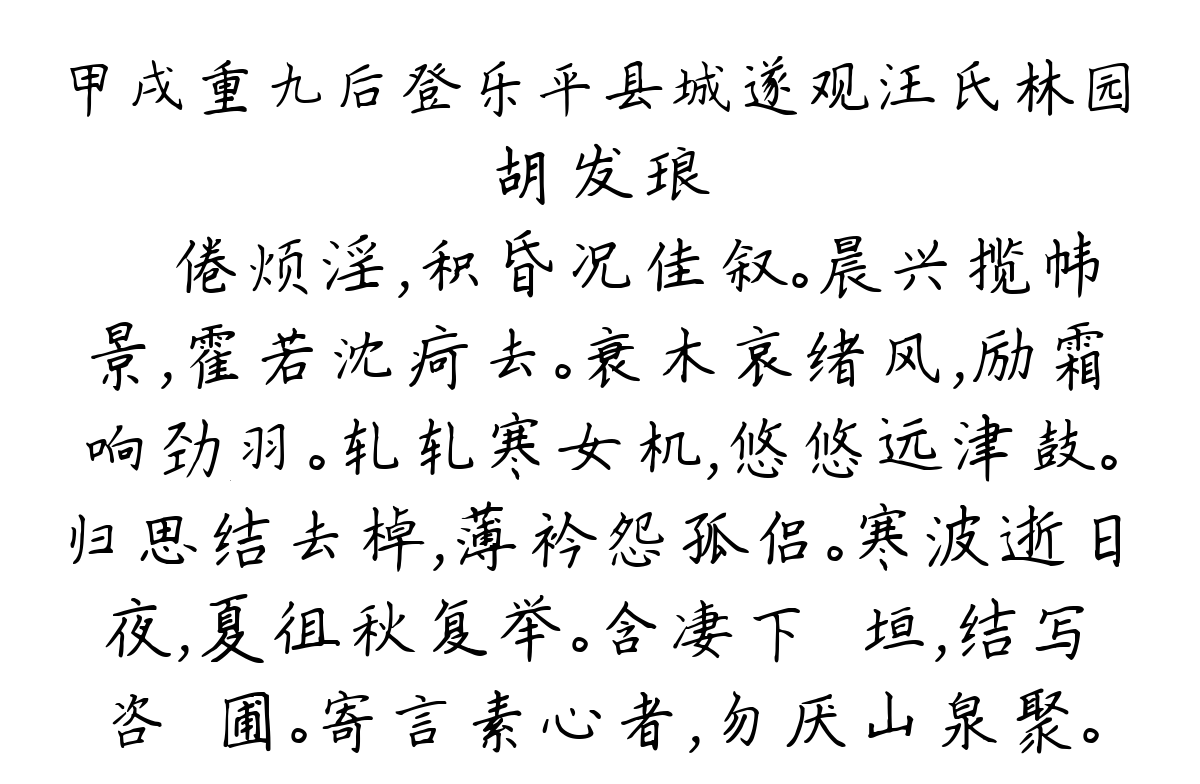 甲戌重九后登乐平县城遂观汪氏林园
胡发琅
倦烦淫,积昏况佳叙。晨兴揽帏
景,霍若沈疴去。衰木哀绪风,励霜
响劲羽。轧轧寒女机,悠悠远津鼓。
归思结去棹,薄衿怨孤侣。寒波逝日
夜,夏徂秋复举。含凄下 垣,结写
咨 圃。寄言素心者,勿厌山泉聚。